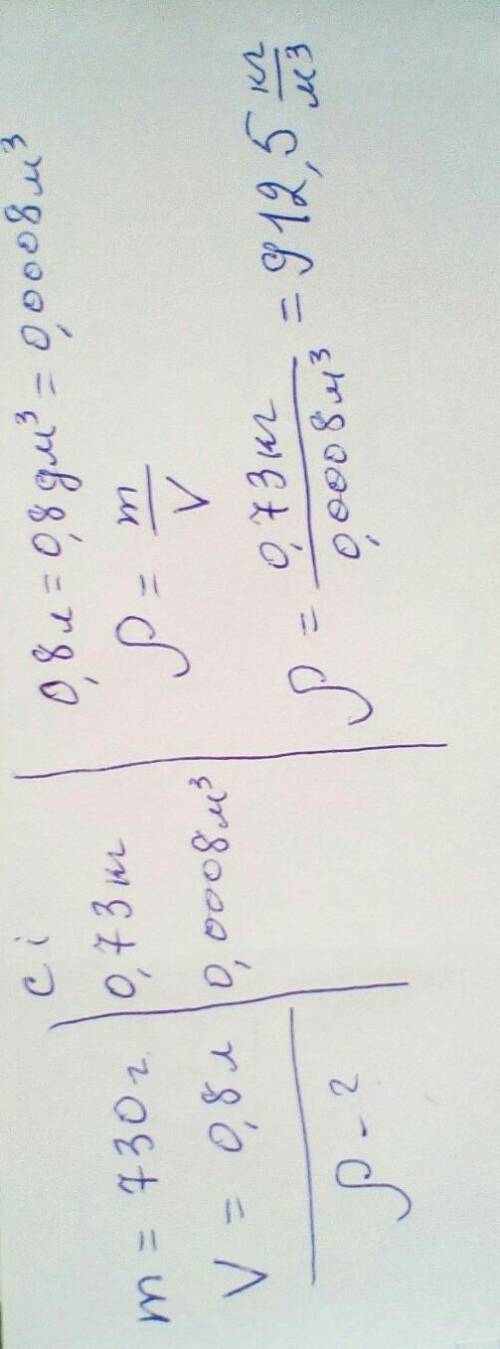 Сі
m = 730 г
V = 0,8 л
ρ - ?
0,73 кг
0,0008 м³
0,8 л = 0,8 дм³ = 0,0008 м³
ρ = m/V
ρ = 0,73 кг/0,0008 м³ = 912,5 кг/м³